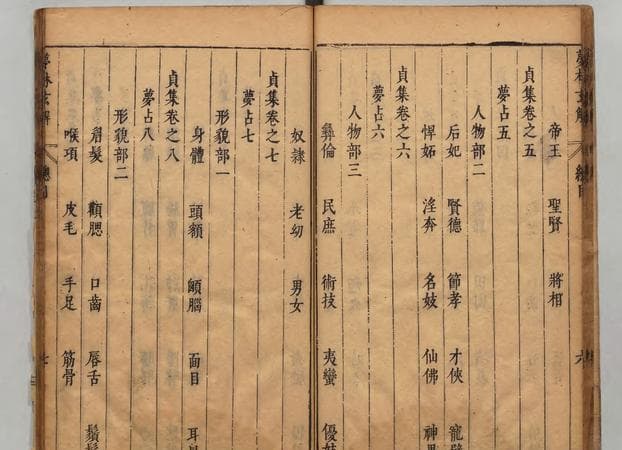 夢林玄解 總目 六
帝王 聖賢 將相
貞集卷之五
夢占五
人物部二
后妃 賢德 節孝 才俠 寵嬖
悍妬 淫奔 名妓 仙佛 神
貞集卷之六
夢占六
人物部三
彝倫 民庶 術技 夷蠻 優
奴隸 老幼 男女
貞集卷之七
夢占七
形貌部一
身體 頭額 顖腦 面目 耳
貞集卷之八
夢占八
形貌部二
眉髮 顴腮 口齒 唇舌 鬚
喉項 皮毛 手足 筋骨
夢林玄解 總目 七